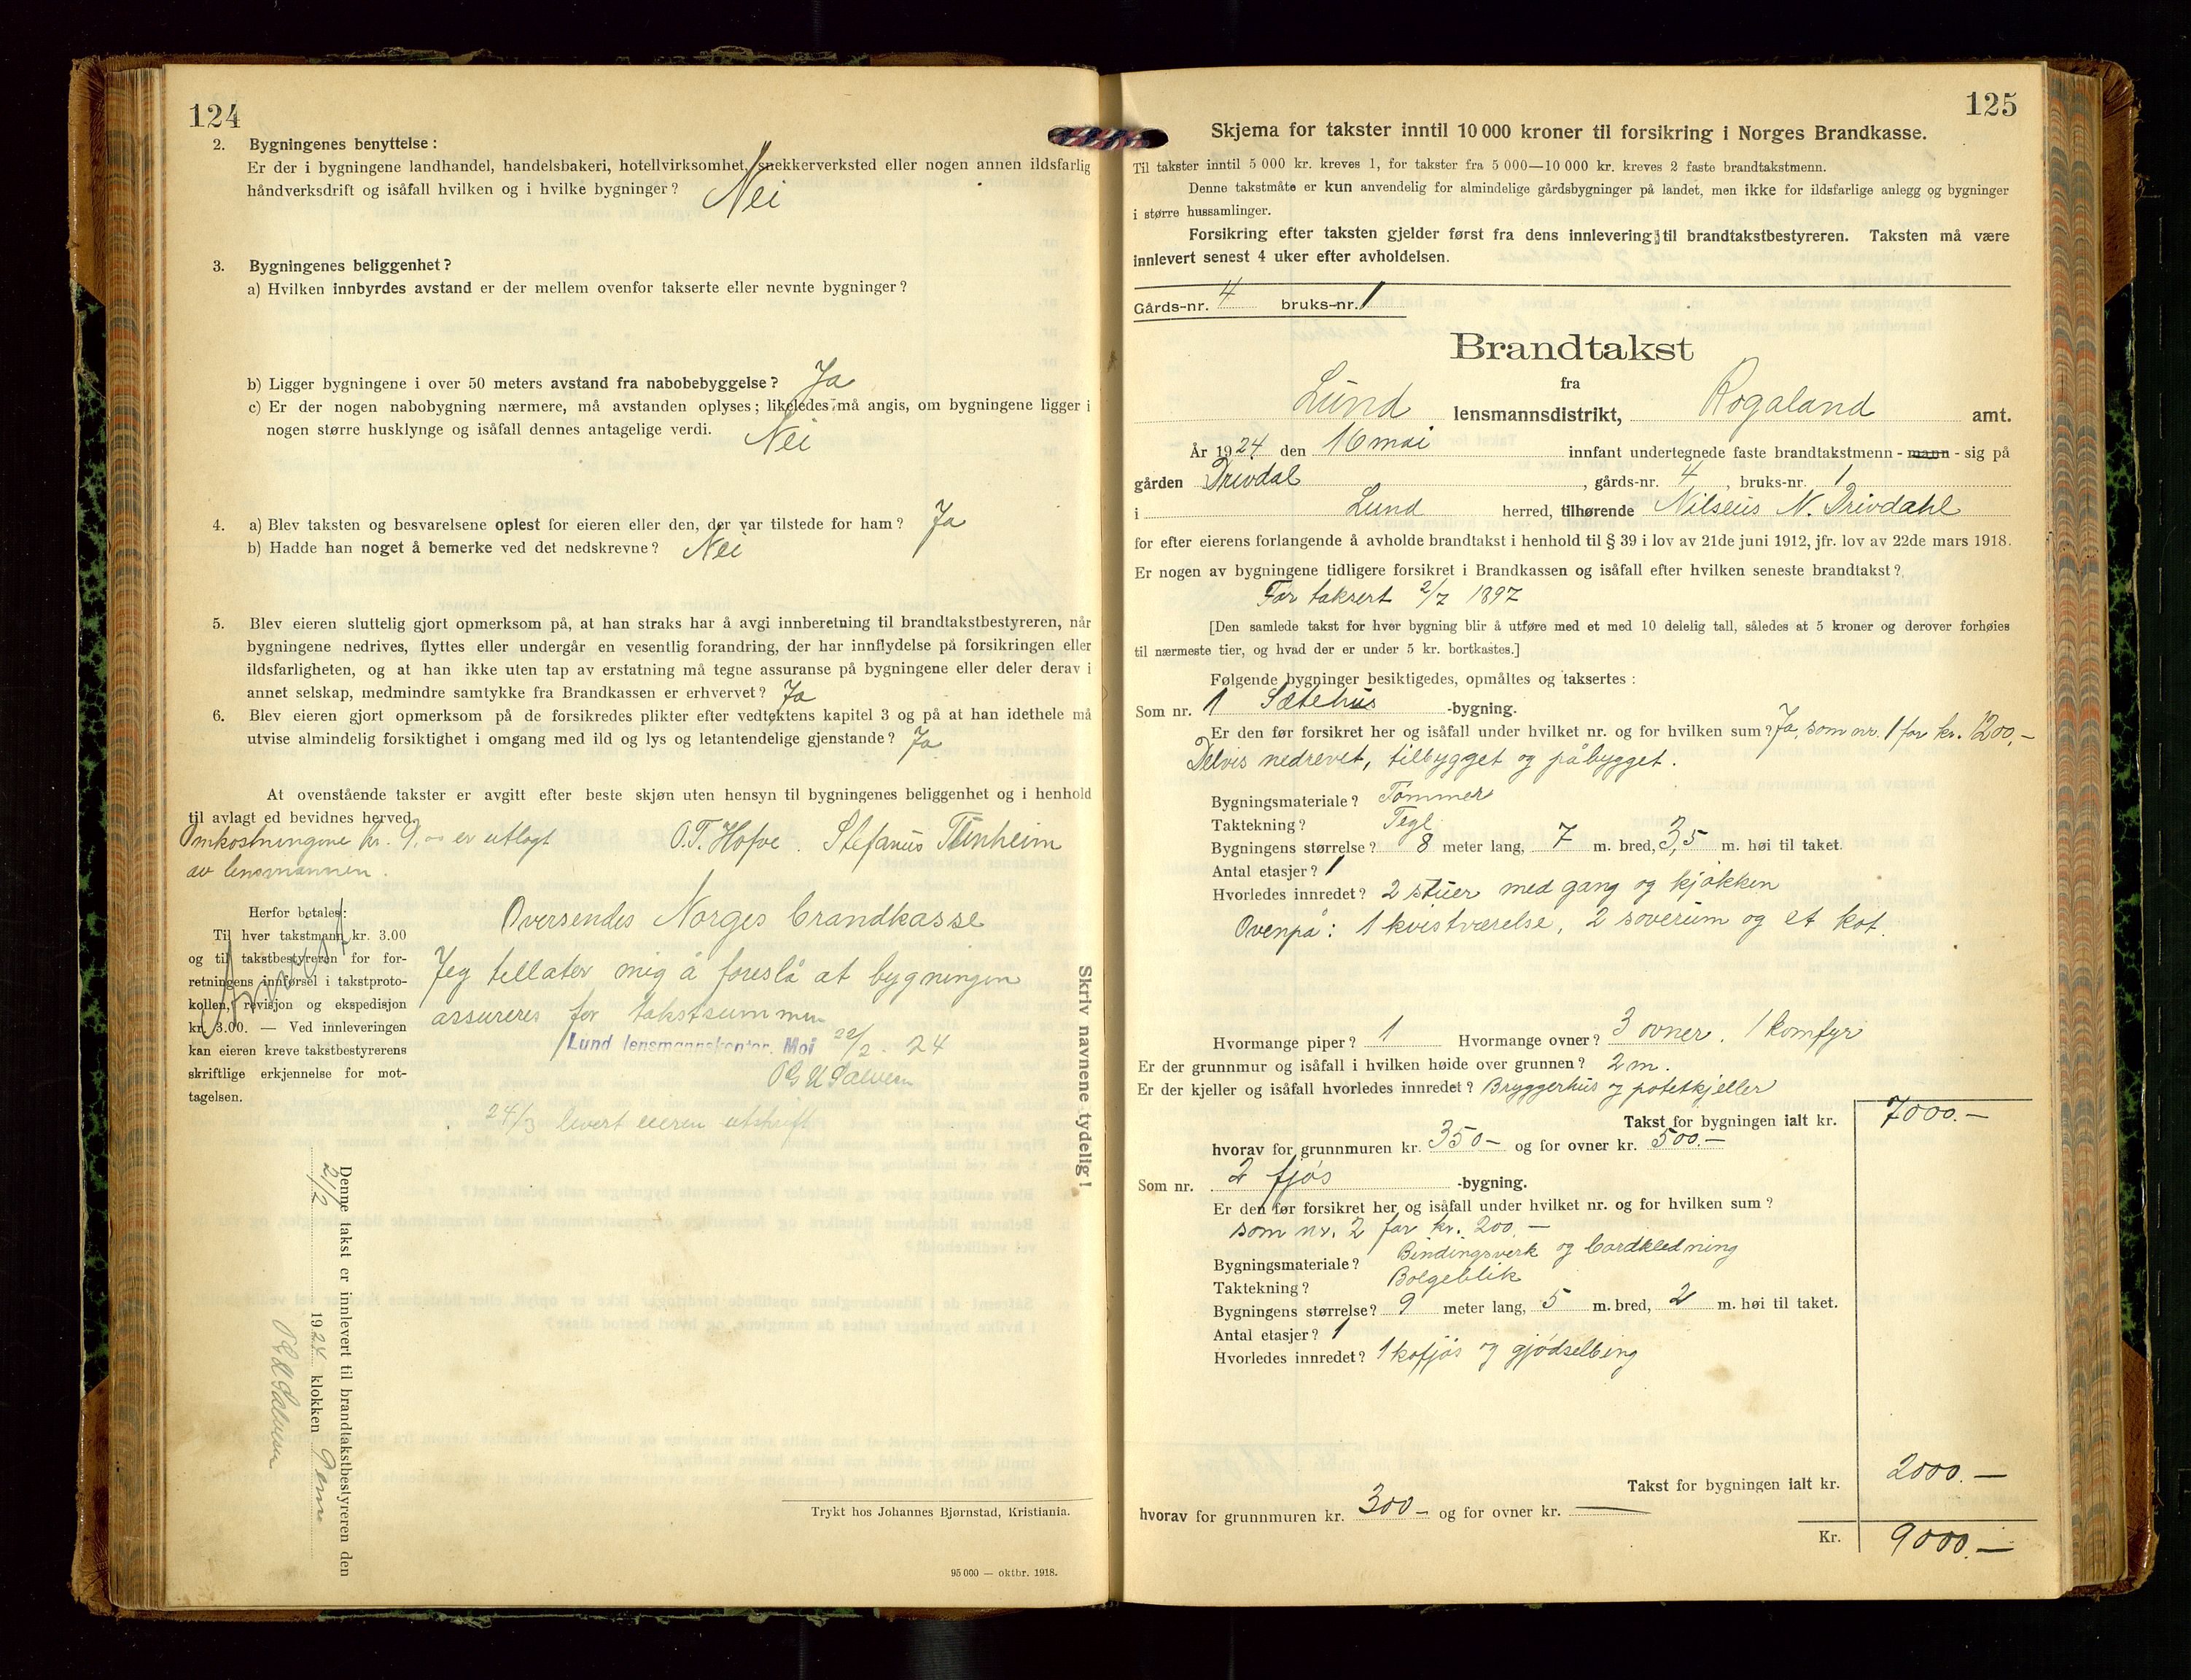 124
2. Bygningenes benyttelse:
Er der i bygningene landhandel, handelsbakeri, hotellvirksomhet, snekkerverksted eller nogen annen ildsfarlig
håndverksdrift og isåfall hvilken og i hvilke bygninger? Nei
3. Bygningenes beliggenhet?
a) Hvilken innbyrdes avstand er der mellem ovenfor takserte eller nevnte bygninger?
b) Ligger bygningene i over 50 meters avstand fra nabobebyggelse? Ja
c) Er der nogen nabobygning nærmere, må avstanden oplyses; likeledes må angis, om bygningene ligger i
nogen større husklynge og isåfall dennes antagelige verdi. Nei
4. a) Blev taksten og besvarelsene oplest for eieren eller den, der var tilstede for ham? Ja
b) Hadde han noget å bemerke ved det nedskrevne? Nei
5. Blev eieren sluttelig gjort opmerksom på, at han straks har å avgi innberetning til brandtakstbestyreren, når
bygningene nedrives, flyttes eller undergår en vesentlig forandring, der har innflydelse på forsikringen eller
ildsfarligheten, og at han ikke uten tap av erstatning må tegne assuranse på bygningene eller deler derav i
annet selskap, medmindre samtykke fra Brandkassen er erhvervet? Ja
6. Blev eieren gjort opmerksom på de forsikredes plikter efter vedtektens kapitel 3 og på at han idethele må
utvise almindelig forsiktighet i omgang med ild og lys og letantendelige gjenstande? Ja
At ovenstående takster er avgitt efter beste skjøn uten hensyn til bygningenes beliggenhet og i henhold
til avlagt ed bevidnes herved.
Omkostningene kr. 9,00 er utlagt O.T. Hofve. Stefanus
av lensmannen.
Herfor betales:
Til hver takstmann kr. 3.00
og til takstbestyreren for for-
retningens innførsel i takstproto-
kollen, revisjon og ekspedisjon
kr. 3.00. — Ved innleveringen
kan eieren kreve takstbestyrerens
skriftlige erkjennelse for mot-
tagelsen.
Oversendes Norges brandkasse
Jeg tellater mig å foreslå at bygningen
assureres for takstsummen
Lund lensmannskontor. Moi 22/2 - 24
24/3 levert eieren utskrift
Skriv navnene tydelig!
Denne takst er innlevert til brandtakstbestyreren den
21/2 1924 klokken 9 em
Trykt hos Johannes Bjørnstad, Kristiania.
95 000 — oktbr. 1918.
125
Skjema for takster inntil 10 000 kroner til forsikring i Norges Brandkasse.
Til takster inntil 5 000 kr. kreves 1, for takster fra 5 000—10 000 kr. kreves 2 faste brandtakstmenn.
Denne takstmåte er kun anvendelig for almindelige gårdsbygninger på landet, men ikke for ildsfarlige anlegg og bygninger
i større hussamlinger.
Forsikring efter taksten gjelder først fra dens innlevering til brandtakstbestyreren. Taksten må være
innlevert senest 4 uker efter avholdelsen.
Gårds-nr. 4 bruks-nr. 1
Brandtakst
fra
Lund lensmannsdistrikt, Rogaland amt.
År 1924 den 16 mai innfant undertegnede faste brandtakstmenn - mann - sig på
gården Drivdal, gårds-nr. 4, bruks-nr. 1
i Lund herred, tilhørende Nilseus N. Drivdahl
for efter eierens forlangende å avholde brandtakst i henhold til § 39 i lov av 21de juni 1912, jfr. lov av 22de mars 1918.
Er nogen av bygningene tidligere forsikret i Brandkassen og isåfall efter hvilken seneste brandtakst?
Før taksert 2/7 1897
[Den samlede takst for hver bygning blir å utføre med et med 10 delelig tall, således at 5 kroner og derover forhøies
til nærmeste tier, og hvad der er under 5 kr. bortkastes.]
Følgende bygninger besiktigedes, opmåltes og taksertes:
Som nr. 1 Sætehus -bygning.
Er den før forsikret her og isåfall under hvilket nr. og for hvilken sum? Ja, som nr. 1 for kr. 1200,-
Delvis nedrevet, tilbygget og påbygget.
Bygningsmateriale? Tømmer
Taktekning? Tegl
Bygningens størrelse? 8 meter lang, 7 m. bred, 3,5 m. høi til taket.
Antal etasjer? 1
Hvorledes innredet? 2 stuer med gang og kjøkken
Ovenpå: 1 kvistværelse, 2 soverum og et kot.
Hvormange piper? 1 Hvormange ovner? 3 ovner. 1 komfyr
Er der grunnmur og isåfall i hvilken høide over grunnen? 2 m.
Er der kjeller og isåfall hvorledes innredet? Bryggerhus og potetkjeller
Takst for bygningen ialt kr. 7000.-
hvorav for grunnmuren kr. 350- og for ovner kr. 500.-
Som nr. 2 fjøs -bygning.
Er den før forsikret her og isåfall under hvilket nr. og for hvilken sum?
som nr. 2 for kr. 200,-
Bygningsmateriale? Bindingsverk og bordkledning
Taktekning? Bølgeblik
Bygningens størrelse? 9 meter lang, 5 m. bred, 2 m. høi til taket.
Antal etasjer? 1
Hvorledes innredet? 1 kofjøs og gjødselbing
Takst for bygningen ialt kr. 2000.-
hvorav for grunnmuren kr. 300- og for ovner kr. —
Kr. 9000.-